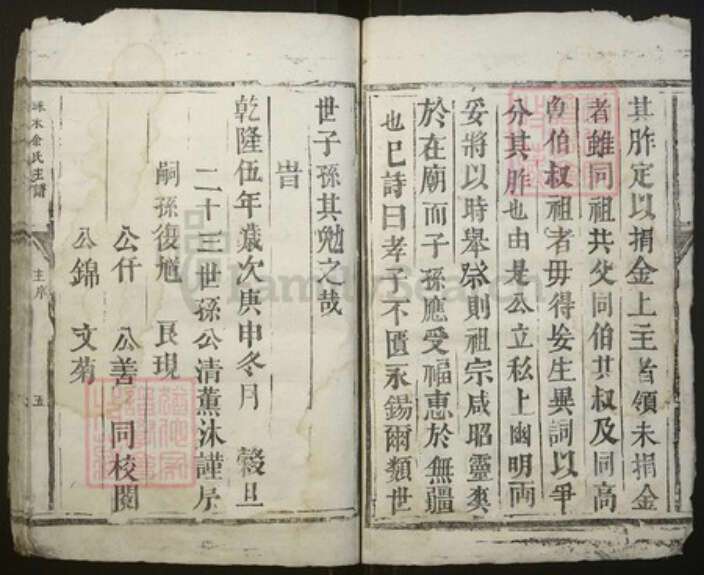 其胙定以捐金上主者領未捐金
者雖同祖共父同伯共叔及同高
曾伯叔祖者毋得妄生異詞以爭
分其胙也由是公立私上幽明兩
妥將以時舉祭則祖宗咸昭靈爽
於在廟而子孫應受福惠於無疆
也已詩曰孝子不匱永錫爾類世
世子孫其勉之哉
旹
乾隆伍年歲次庚申冬月 穀旦
二十三世孫公清薰沐謹序
嗣孫復尲 民現
公仟 公善 同校閱
公錦 文菊
余氏主譜
主序
五
FamilySearch